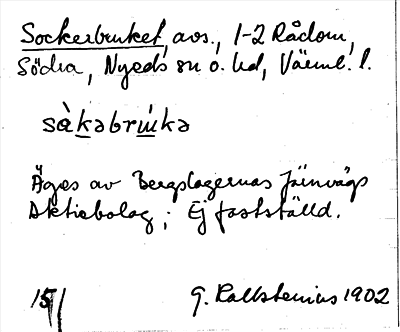 Sockerbruket, avs., 1-2 Rådom,
Södra, Nyeds sn o. hd, Värml. l.
sàkəbrukə
Äges av Bergslagernas Järnvägs
Aktiebolag; Ej fastställd.
15 G. Kallstenius 1902